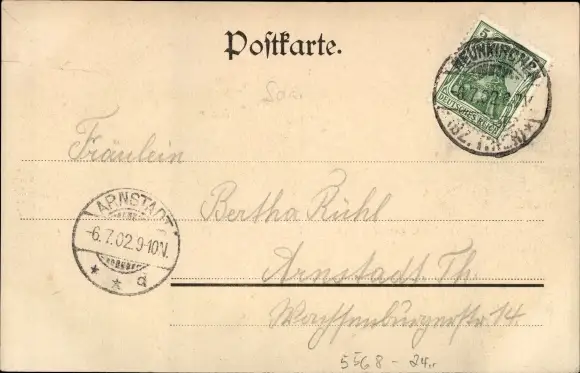 Postkarte.
5
NEUNKIRCHEN
DEUTSCHES REICH
(BZ. TRIER)
Fräulein
ARNSTADT
-6.7.02.9-10V.
* * a
Bertha Rühl
Arnstadt Th.
Wachsenburgerstr 14.
5568 - 24.